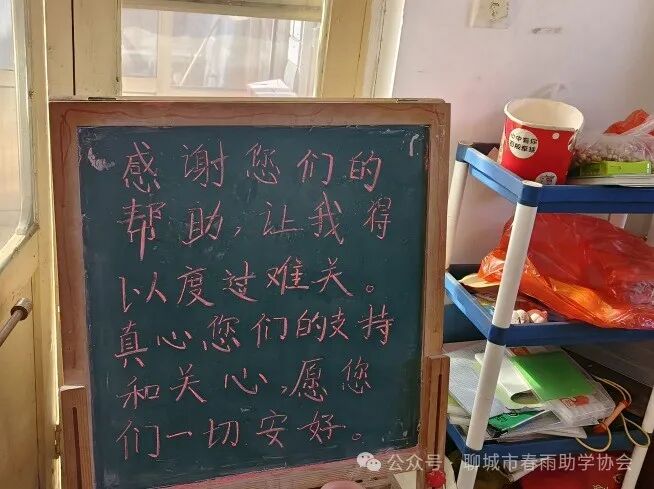 感谢您们的
帮助,让我得
以度过难关。
真心您们的支持
和关心,愿您
们一切安好。
公众号·聊城市春雨助学协会